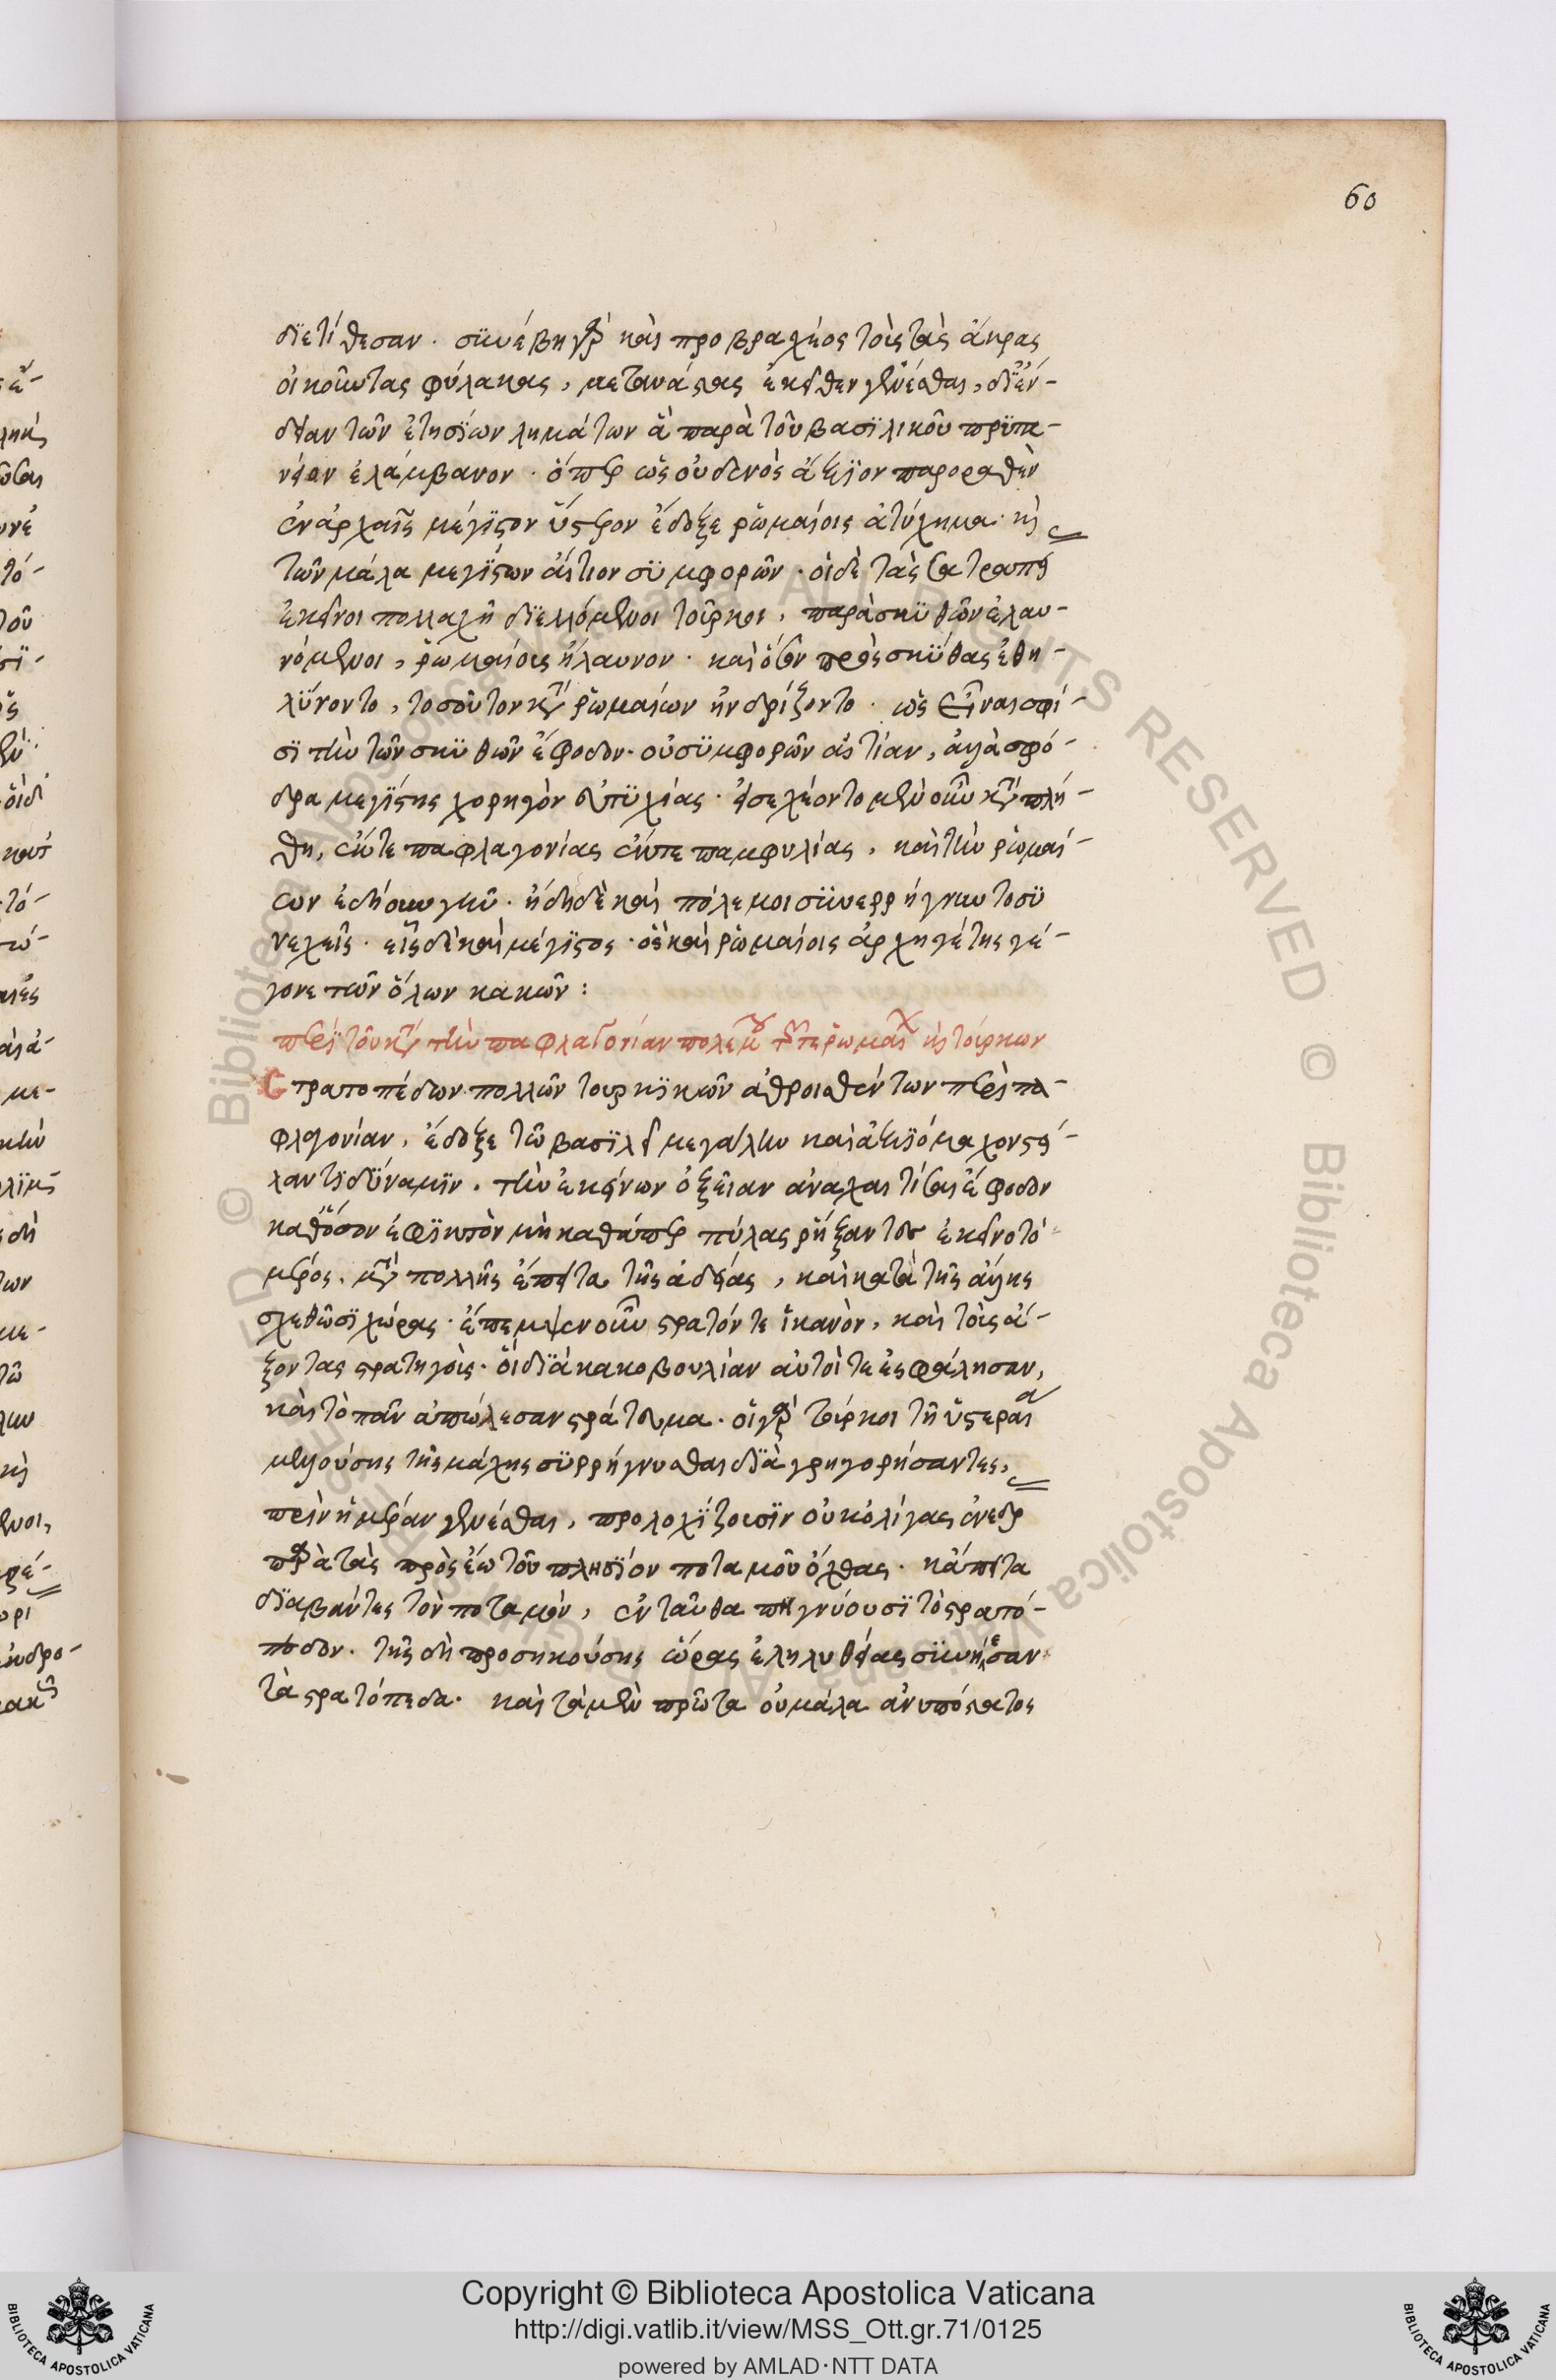 60
διετίθεσαν. συνέβη γὰρ καὶ προβραχέος τοὺς τὰς ἄκρας
οἰκοῦντας φύλακας, μεταναστὰς ἐκεῖθεν γενέσθαι, δι' ἔν-
δειαν τῶν ἐτησίων λημμάτων ἃ παρὰ τοῦ βασιλικοῦ πρυτα-
νείου ἐλάμβανον. ὅπερ ὡς οὐδενὸς ἄξιον παροραθὲν
ἐν ἀρχαῖς μέγιστον ὕστερον ἔδοξε ῥωμαίοις ἀτύχημα. καὶ
τῶν μάλα μεγίστων αἴτιον συμφορῶν. οἱ δὲ τὰς σατραπεί
ἐκεῖνοι πολλαχῆ διελόμενοι τοῦρκοι, παρὰ σκυθῶν ἐλαυ-
νόμενοι, ῥωμαίους ἤλαυνον. καὶ ὅσον πρὸς σκύθας ἐθη-
λύνοντο, τοσοῦτον κατὰ ῥωμαίων ἠνδρίζοντο. ὡς εἶναι σφί-
σι τὴν τῶν σκυθῶν ἔφοδον. οὐ συμφορῶν αἰτίαν, ἀλλὰ σφό-
δρα μεγίστης χορηγὸν εὐτυχίας. εἰσεχέοντο μὲν οὖν κατὰ πλή-
θη, ἔκ τε παφλαγονίας ἔκ τε παμφυλίας, καὶ τὴν ῥωμαί-
ων ἐδῄουν γῆν. ἤδη δὲ καὶ πόλεμοι συνερρήγνυντο συ
νεχεῖς. εἷς δὲ καὶ μέγιστος. ὃς καὶ ῥωμαίοις ἀρχηγέτης γέ-
γονε τῶν ὅλων κακῶν:
περὶ τοῦ κατὰ τὴν παφλαγονίαν πολέμου τῶν τε ῥωμαίων καὶ τούρκων
Στρατοπέδων πολλῶν τουρκικῶν ἀθροισθέντων περὶ πα-
φλαγονίαν, ἔδοξε τῷ βασιλεῖ μεγάλην καὶ ἀξιόμαχον στεί-
λαντι δύναμιν. τὴν ἐκείνων ὀξεῖαν ἀναχαιτίσαι ἔφοδον
καθόσον ἐφικτὸν μὴ καθάπερ πύλας ῥήξαντες ἐκεῖνο τὸ
μέρος. μετὰ πολλῆς ἔπειτα τῆς ἀδείας, καὶ κατὰ τῆς ἄλλης
σχεθῶσι χώρας. ἔπεμψεν οὖν στρατόν τε ἱκανὸν, καὶ τοὺς ἄ-
ξοντας στρατηγούς. οἳ διὰ κακοβουλίαν αὐτοί τε ἐσφάλησαν,
καὶ τὸ πᾶν ἀπώλεσαν στράτευμα. οἱ γὰρ τοῦρκοι τῇ ὑστεραίᾳ
μελλούσης τῆς μάχης συρρήγνυσθαι διαγρηγορήσαντες,
πρὶν ἡμέραν γενέσθαι, προλοχίζουσιν οὐκ ὀλίγας ἐνέδρ
παρὰ τὰς πρὸς ἕω τοῦ πλησίον ποταμοῦ ὄχθας. κἄπειτα
διαβάντες τὸν ποταμὸν, ἐνταῦθα πηγνύουσι τὸ στρατό-
πεδον. τῆς δὴ προσηκούσης ὥρας ἐληλυθείας συνῄεσαν
τὰ στρατόπεδα. καὶ τὰ μὲν πρῶτα οὐ μάλα ἀνυπόστατος
Copyright © Biblioteca Apostolica Vaticana
http://digi.vatlib.it/view/MSS_Ott.gr.71/0125
powered by AMLAD·NTT DATA